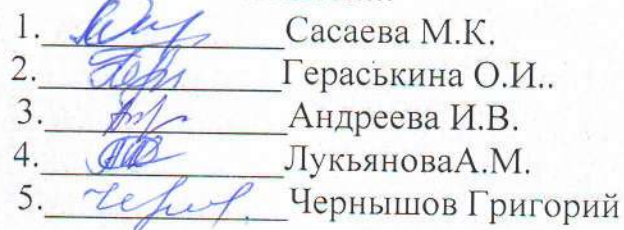 1. Сасаева М.К.
2. Гераськина О.И..
3. Андреева И.В.
4. ЛукьяноваА.М.
5. Чернышов Григорий